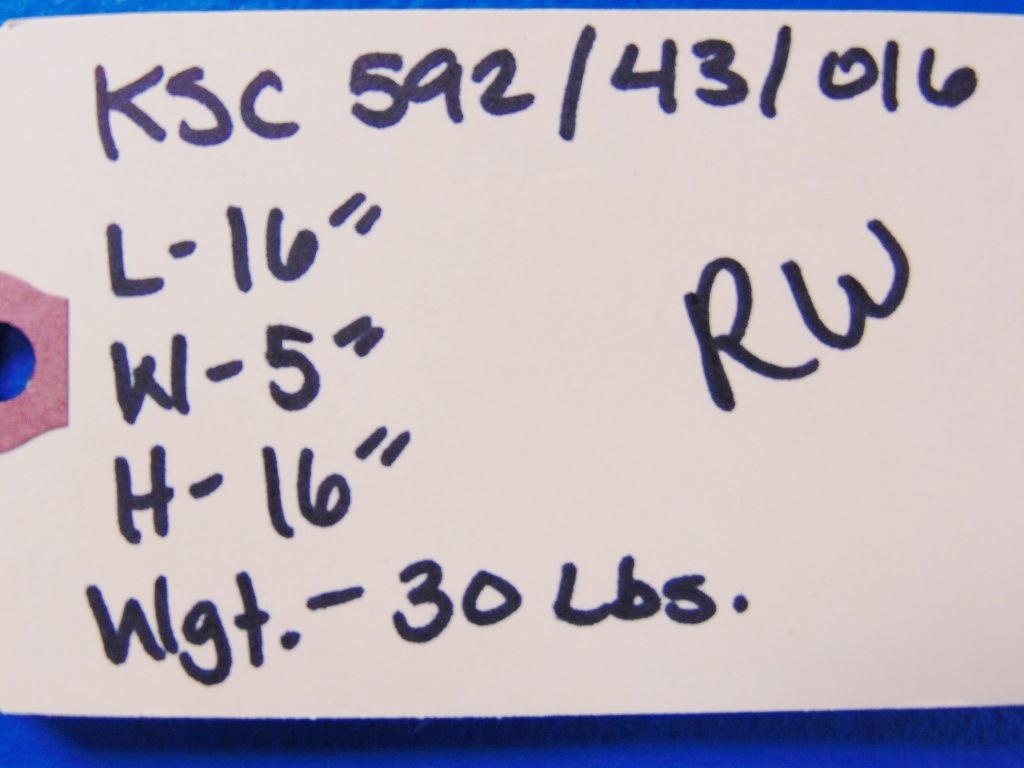 KSC 592/43/016
L-16"
RW
W-5"
H-16"
Wgt.-30 Lbs.